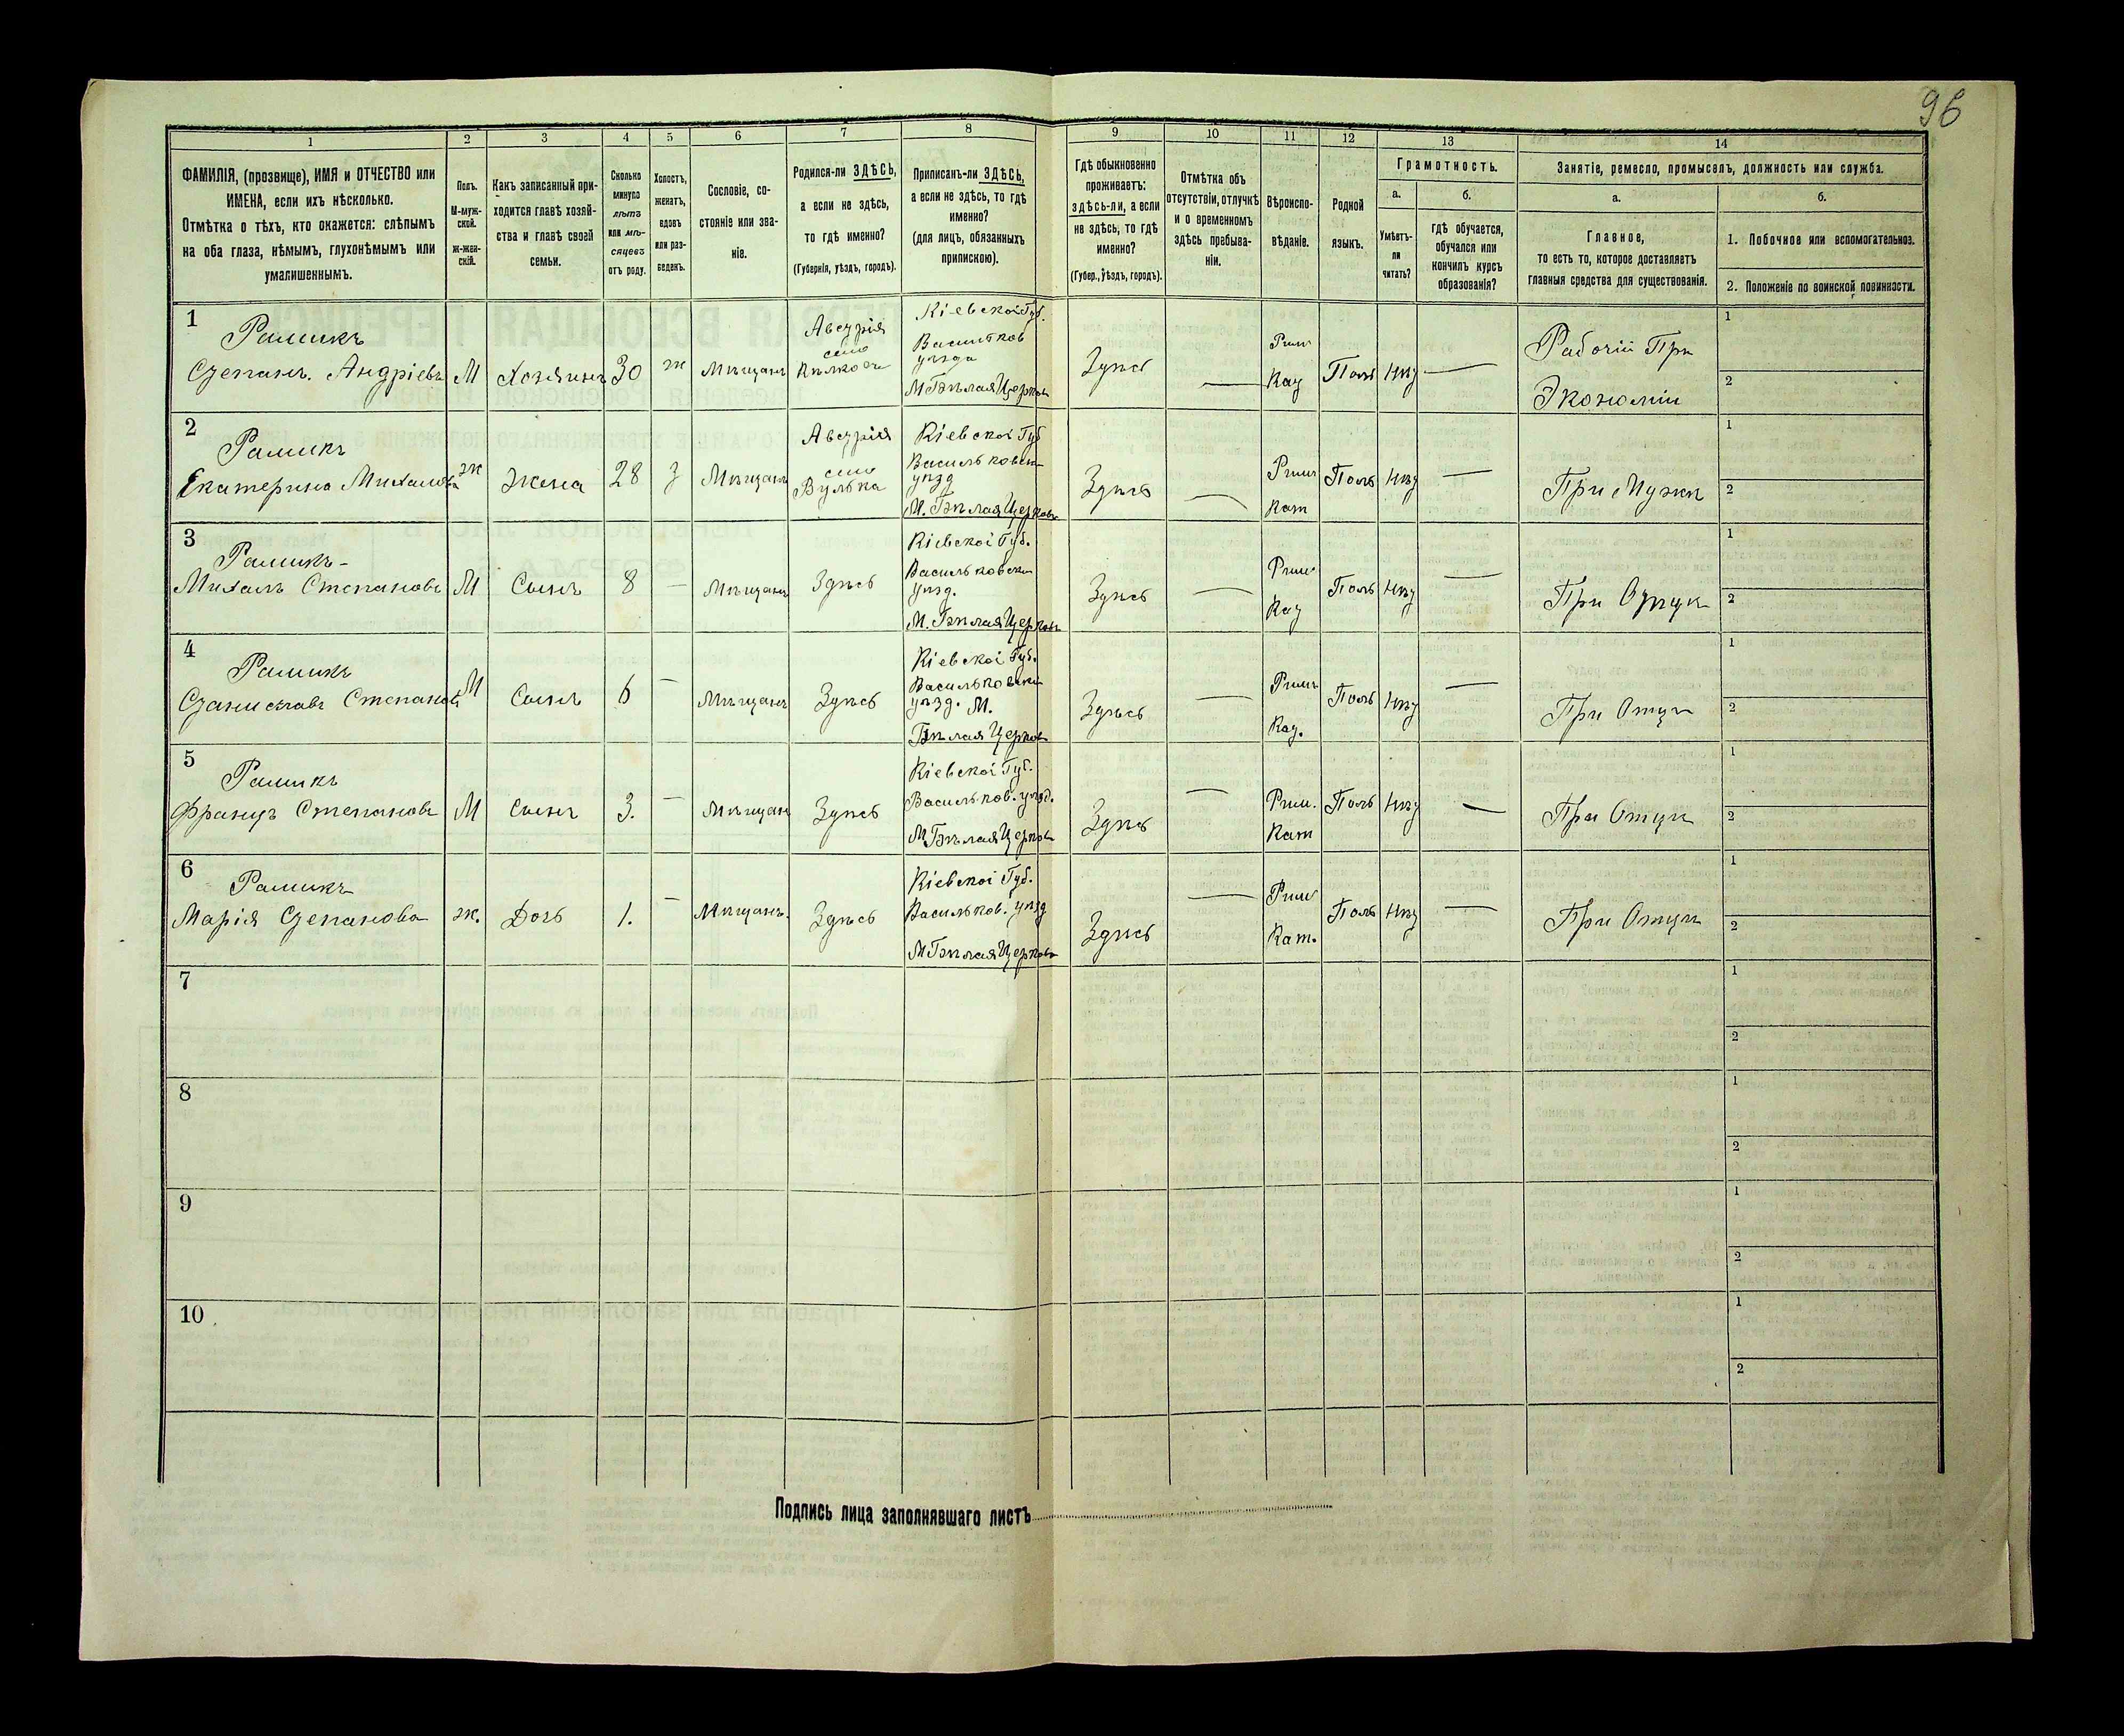 96
1 2 3 4 5 6 7 8 9 10 11 12 13 14
ФАМИЛІЯ, (прозвище), ИМЯ и ОТЧЕСТВО или
ИМЕНА, если ихъ нѣсколько.
Отмѣтка о тѣхъ, кто окажется: слѣпымъ
на оба глаза, нѣмымъ, глухонѣмымъ или
умалишеннымъ.
Полъ.
М-муж-
ской.
ж-жен-
скій.
Какъ записанный при-
ходится главѣ хозяй-
ства и главѣ своей
семьи.
Сколько
минуло
лѣтъ
или мѣ-
сяцевъ
отъ роду.
Холостъ,
женатъ,
вдовъ
или раз-
веденъ.
Сословіе, со-
стояніе или зва-
ніе.
Родился-ли ЗДѢСЬ,
а если не здѣсь,
то гдѣ именно?
(Губернія, уѣздъ, городъ).
Приписанъ-ли ЗДѢСЬ,
а если не здѣсь, то гдѣ
именно?
(для лицъ, обязанныхъ
припискою).
Гдѣ обыкновенно
проживаетъ:
здѣсь-ли, а если
не здѣсь, то гдѣ
именно?
(Губер., уѣздъ, городъ).
Отмѣтка объ
отсутствіи, отлучкѣ
и о временномъ
здѣсь пребыва-
ніи.
Вѣроиспо-
вѣданіе.
Родной
языкъ.
Грамотность.
а.
Умѣетъ-
ли
читать?
б.
гдѣ обучается,
обучался или
кончилъ курсъ
образованія?
Занятіе, ремесло, промыселъ, должность или служба.
а.
Главное,
то есть то, которое доставляетъ
главныя средства для существованія.
б.
1. Побочное или вспомогательное.
2. Положеніе по воинской повинности.
1
Степанъ. Андріевъ
М
Хозяинъ
30
ж
Мѣщанъ
Австрія
село
Кіевской Губ.
уѣзда
М Бѣлая Церковь
Здѣсь
—
Рим
Кат
Поль
Нѣт
—
Рабочій При
Экономіи
1
2
2
Екатерина Михалова
ж
Жена
28
з
Мѣщанъ
Австрія
село
Вулька
Кіевской Губ
Васильковск
уѣзд
М. Бѣлая Церковь
Здѣсь
—
Рим
Кат
Поль
Нѣт
—
При Мужѣ
1
2
3
Михалъ Степановъ
М
Сынъ
8
—
Мѣщанъ
Здѣсь
Кіевской Губ.
Васильковск
уѣзд.
М. Бѣлая Церковь
Здѣсь
—
Рим
Кат
Поль
Нѣт
—
При Отцѣ
1
2
4
Станиславъ Степановъ
М
Сынъ
6
—
Мѣщанъ
Здѣсь
Кіевской Губ.
Васильковск
уѣзд. М.
Бѣлая Церковь
Здѣсь
—
Рим
Кат.
Поль
Нѣт
—
При Отцѣ
1
2
5
Францъ Степановъ
М
Сынъ
3.
—
Мѣщан
Здѣсь
Кіевской Губ.
Васильков. уѣзд.
М Бѣлая Церковь
Здѣсь
—
Рим.
Кат
Поль
Нѣт
—
При Отцѣ
1
2
6
Марія Степанова
ж.
Дочь
1.
—
Мѣщанъ.
Здѣсь
Кіевской Губ.
Васильков. уѣзд
М Бѣлая Церковь
Здѣсь
—
Рим
Кат.
Поль
Нѣт
—
При Отцѣ
1
2
7
1
2
8
1
2
9
1
2
10
1
2
Подпись лица заполнявшаго листъ